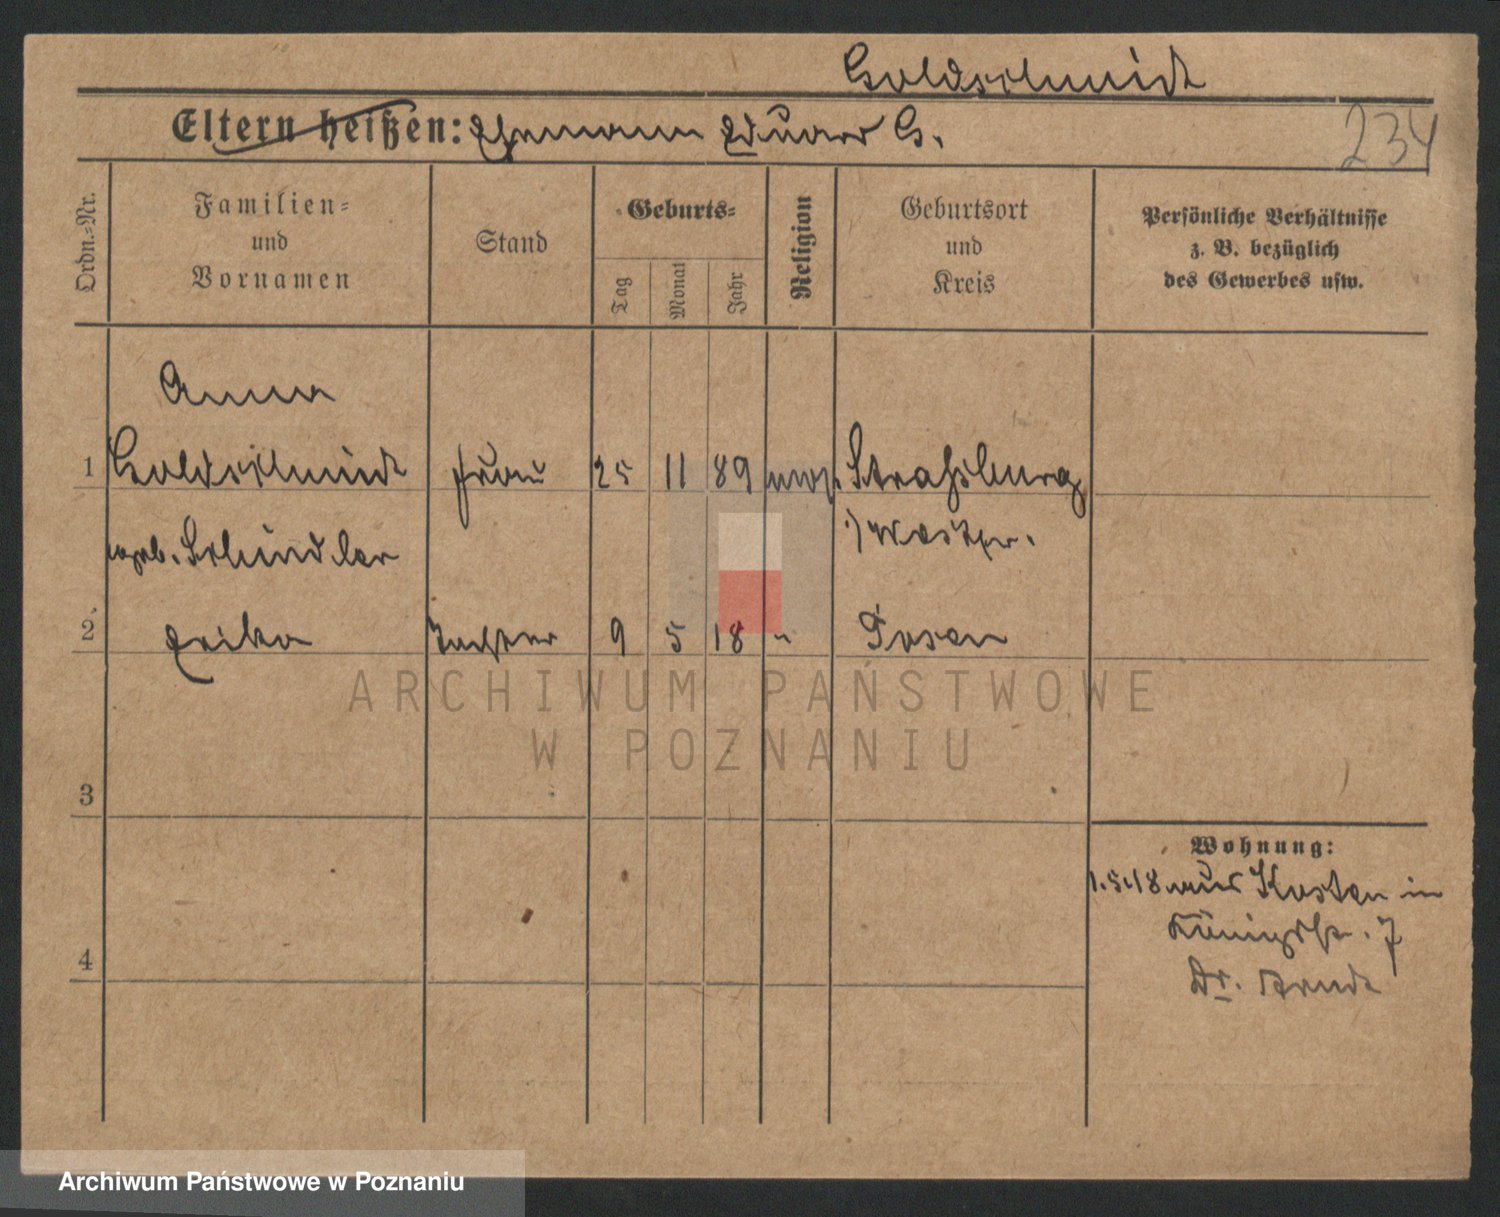 Goldschmidt
Eltern heißen: Ehemann Eduard G.
234
Ordn.-Nr.
Familien-
und
Vornamen
Stand
Geburts-
Tag
Monat
Jahr
Religion
Geburtsort
und
Kreis
Persönliche Verhältnisse
z. B. bezüglich
des Gewerbes usw.
Anna
1 Goldschmidt Frau 25 11 89 mos. Straßburg
geb. Schindler i/Westpr.
2 Erika Tochter 9 5 18 " Posen
ARCHIWUM PAŃSTWOWE
W POZNANIU
3
Wohnung:
1.5.18 aus Kosten in
Königstr. 7
4
Dr. Arndt
Archiwum Państwowe w Poznaniu